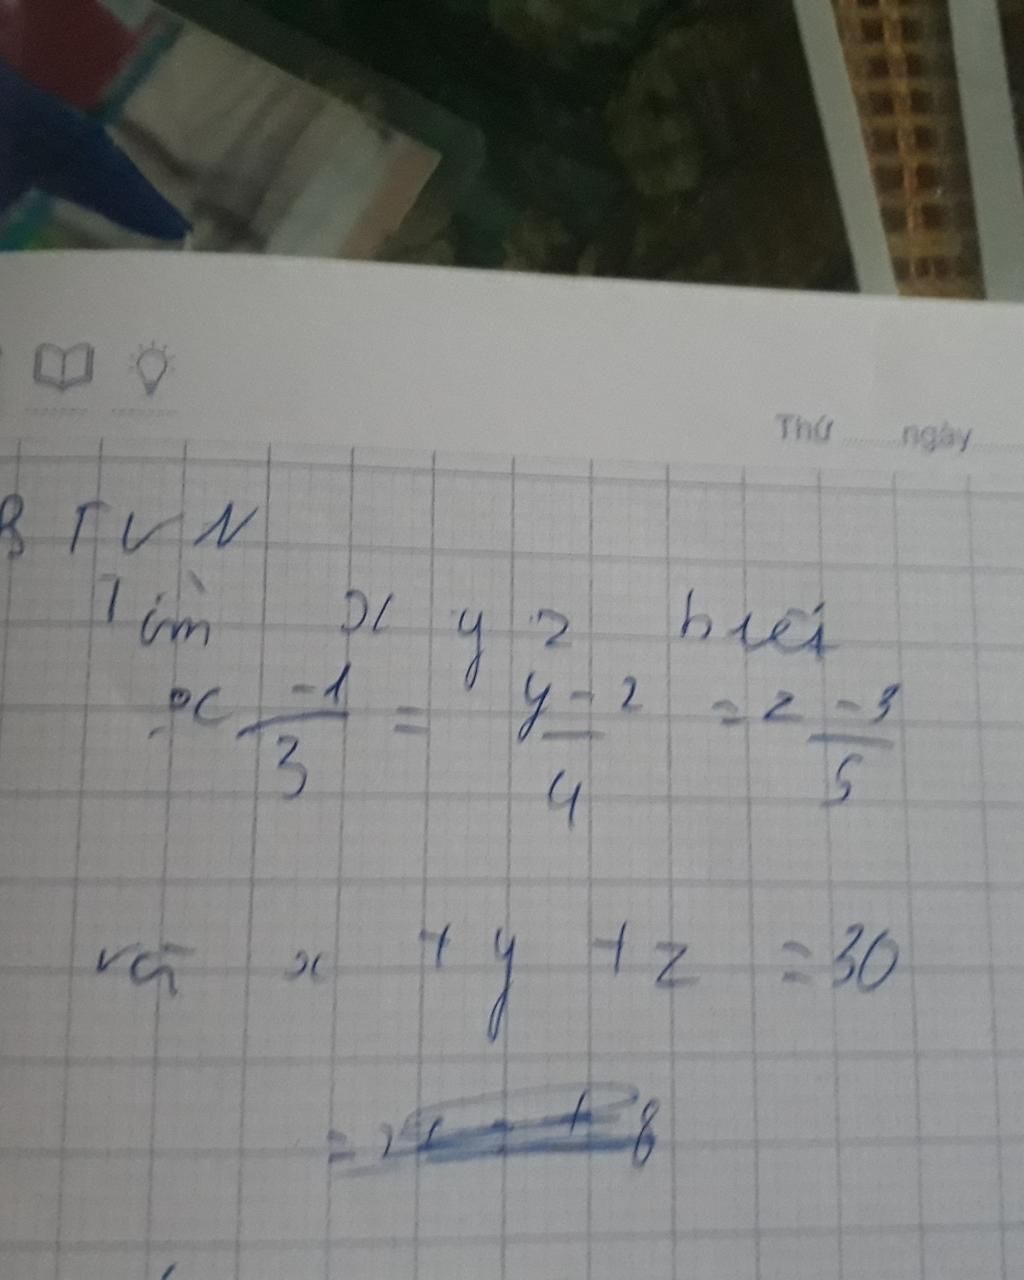 Thứ ngày
BTVN
Tìm x y z biết
x-1/3 = y-2/4 = z-3/5
và x + y + z = 30